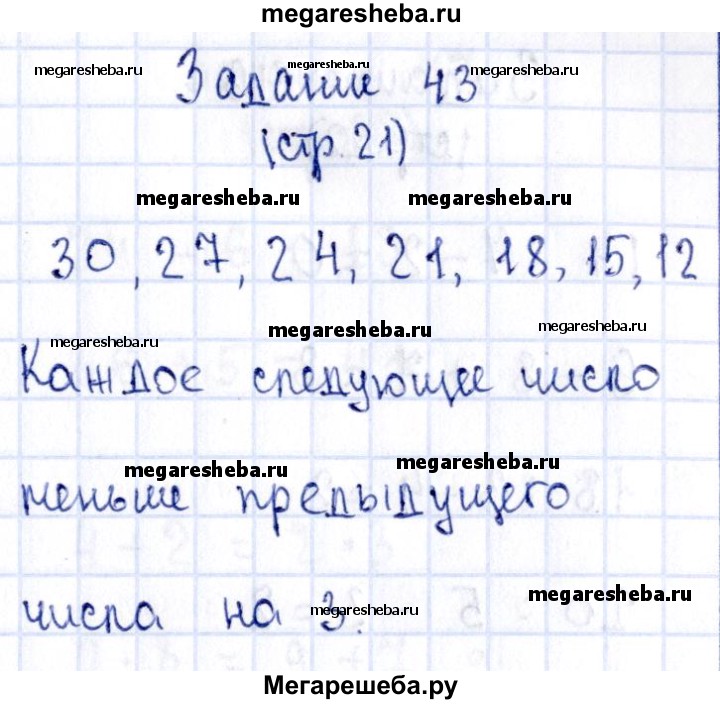 megaresheba.ru
megaresheba.ru megaresheba.ru megaresheba.ru
Задание 43
(стр. 21)
megaresheba.ru megaresheba.ru
30, 27, 24, 21, 18, 15, 12
megaresheba.ru megaresheba.ru megaresheba.ru
Каждое следующее число
megaresheba.ru megaresheba.ru
меньше предыдущего
числа на 3.
megaresheba.ru megaresheba.ru
Мегарешеба.ру